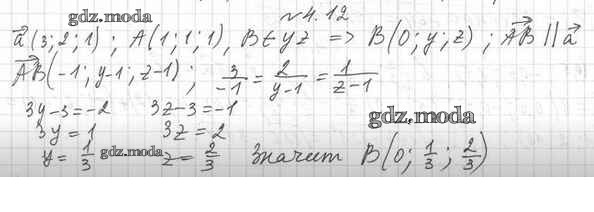 gdz.moda
№4.12
a⃗(3;2;1); A(1;1;1), B∈yz => B(0;y;z); AB⃗ || a⃗
AB⃗(-1; y-1; z-1); 3/-1 = 2/y-1 = 1/z-1
3y-3=-2 3z-3=-1
3y=1 3z=2
gdz.moda
y=1/3 gdz.moda z=2/3 Значит B(0; 1/3; 2/3)